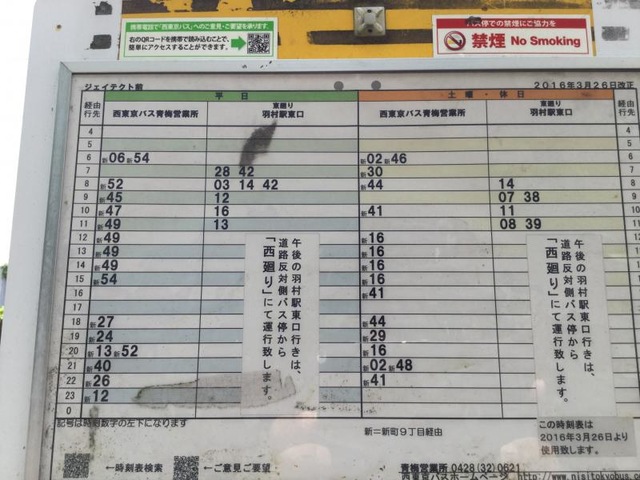 携帯電話で「西東京バス」へのご意見・ご要望を承ります。
右のQRコードを携帯で読み込むことで、
簡単にアクセスすることができます。
バス停での禁煙にご協力を
禁煙 No Smoking
ジェイテクト前
2016年3月26日改正
経由
行先
平日
土曜・休日
西東京バス青梅営業所
東廻り
羽村駅東口
西東京バス青梅営業所
東廻り
羽村駅東口
4
5
6 新06 新54 新02 新46
7 28 42 新30
8 新52 03 14 42 新44 14
9 新45 12 07 38
10 新47 16 新41 11
11 新49 13 08 39
12 新49 新16
13 新49 新16
14 新49 新16
15 新54 新16
16 新41
17
18 新27 新44
19 新24 新29
20 新13 新52 新16
21 新40 新02 新48
22 新26 新41
23 新12
0
午後の羽村駅東口行きは、
道路反対側バス停から
「西廻り」にて運行致します。
午後の羽村駅東口行きは、
道路反対側バス停から
「西廻り」にて運行致します。
記号は時刻数字の左下になります
新=新町9丁目経由
この時刻表は
2016年3月26日より
使用致します。
←時刻表検索
←ご意見ご要望
青梅営業所 0428(32)0621
西東京バスホームページ http://www.nisitokyobus.co